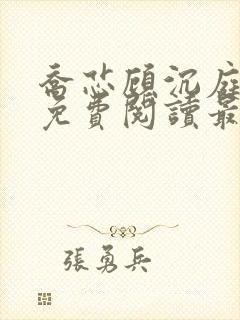 喬芯顧沉庭
免費閱讀最
張勇兵